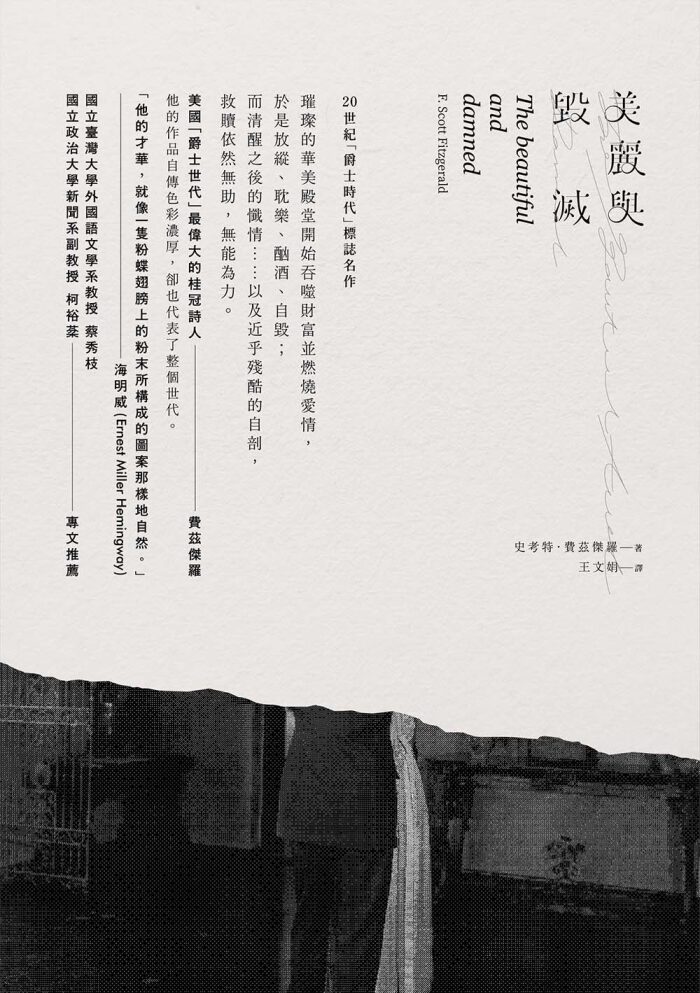 美麗與
毀滅
The beautiful
and
damned
F. Scott Fitzgerald
史考特·費茲傑羅—著
王文娟—譯
20世紀「爵士時代」標誌名作
璀璨的華美殿堂開始吞噬財富並燃燒愛情，
於是放縱、耽樂、酗酒、自毀；
而清醒之後的懺情……以及近乎殘酷的自剖，
救贖依然無助，無能為力。
美國「爵士世代」最偉大的桂冠詩人——費茲傑羅
他的作品自傳色彩濃厚，卻也代表了整個世代。
「他的才華，就像一隻粉蝶翅膀上的粉末所構成的圖案那樣地自然。」
——海明威(Ernest Miller Hemingway)
國立臺灣大學外國語文學系教授 蔡秀枝
國立政治大學新聞系副教授 柯裕棻——專文推薦